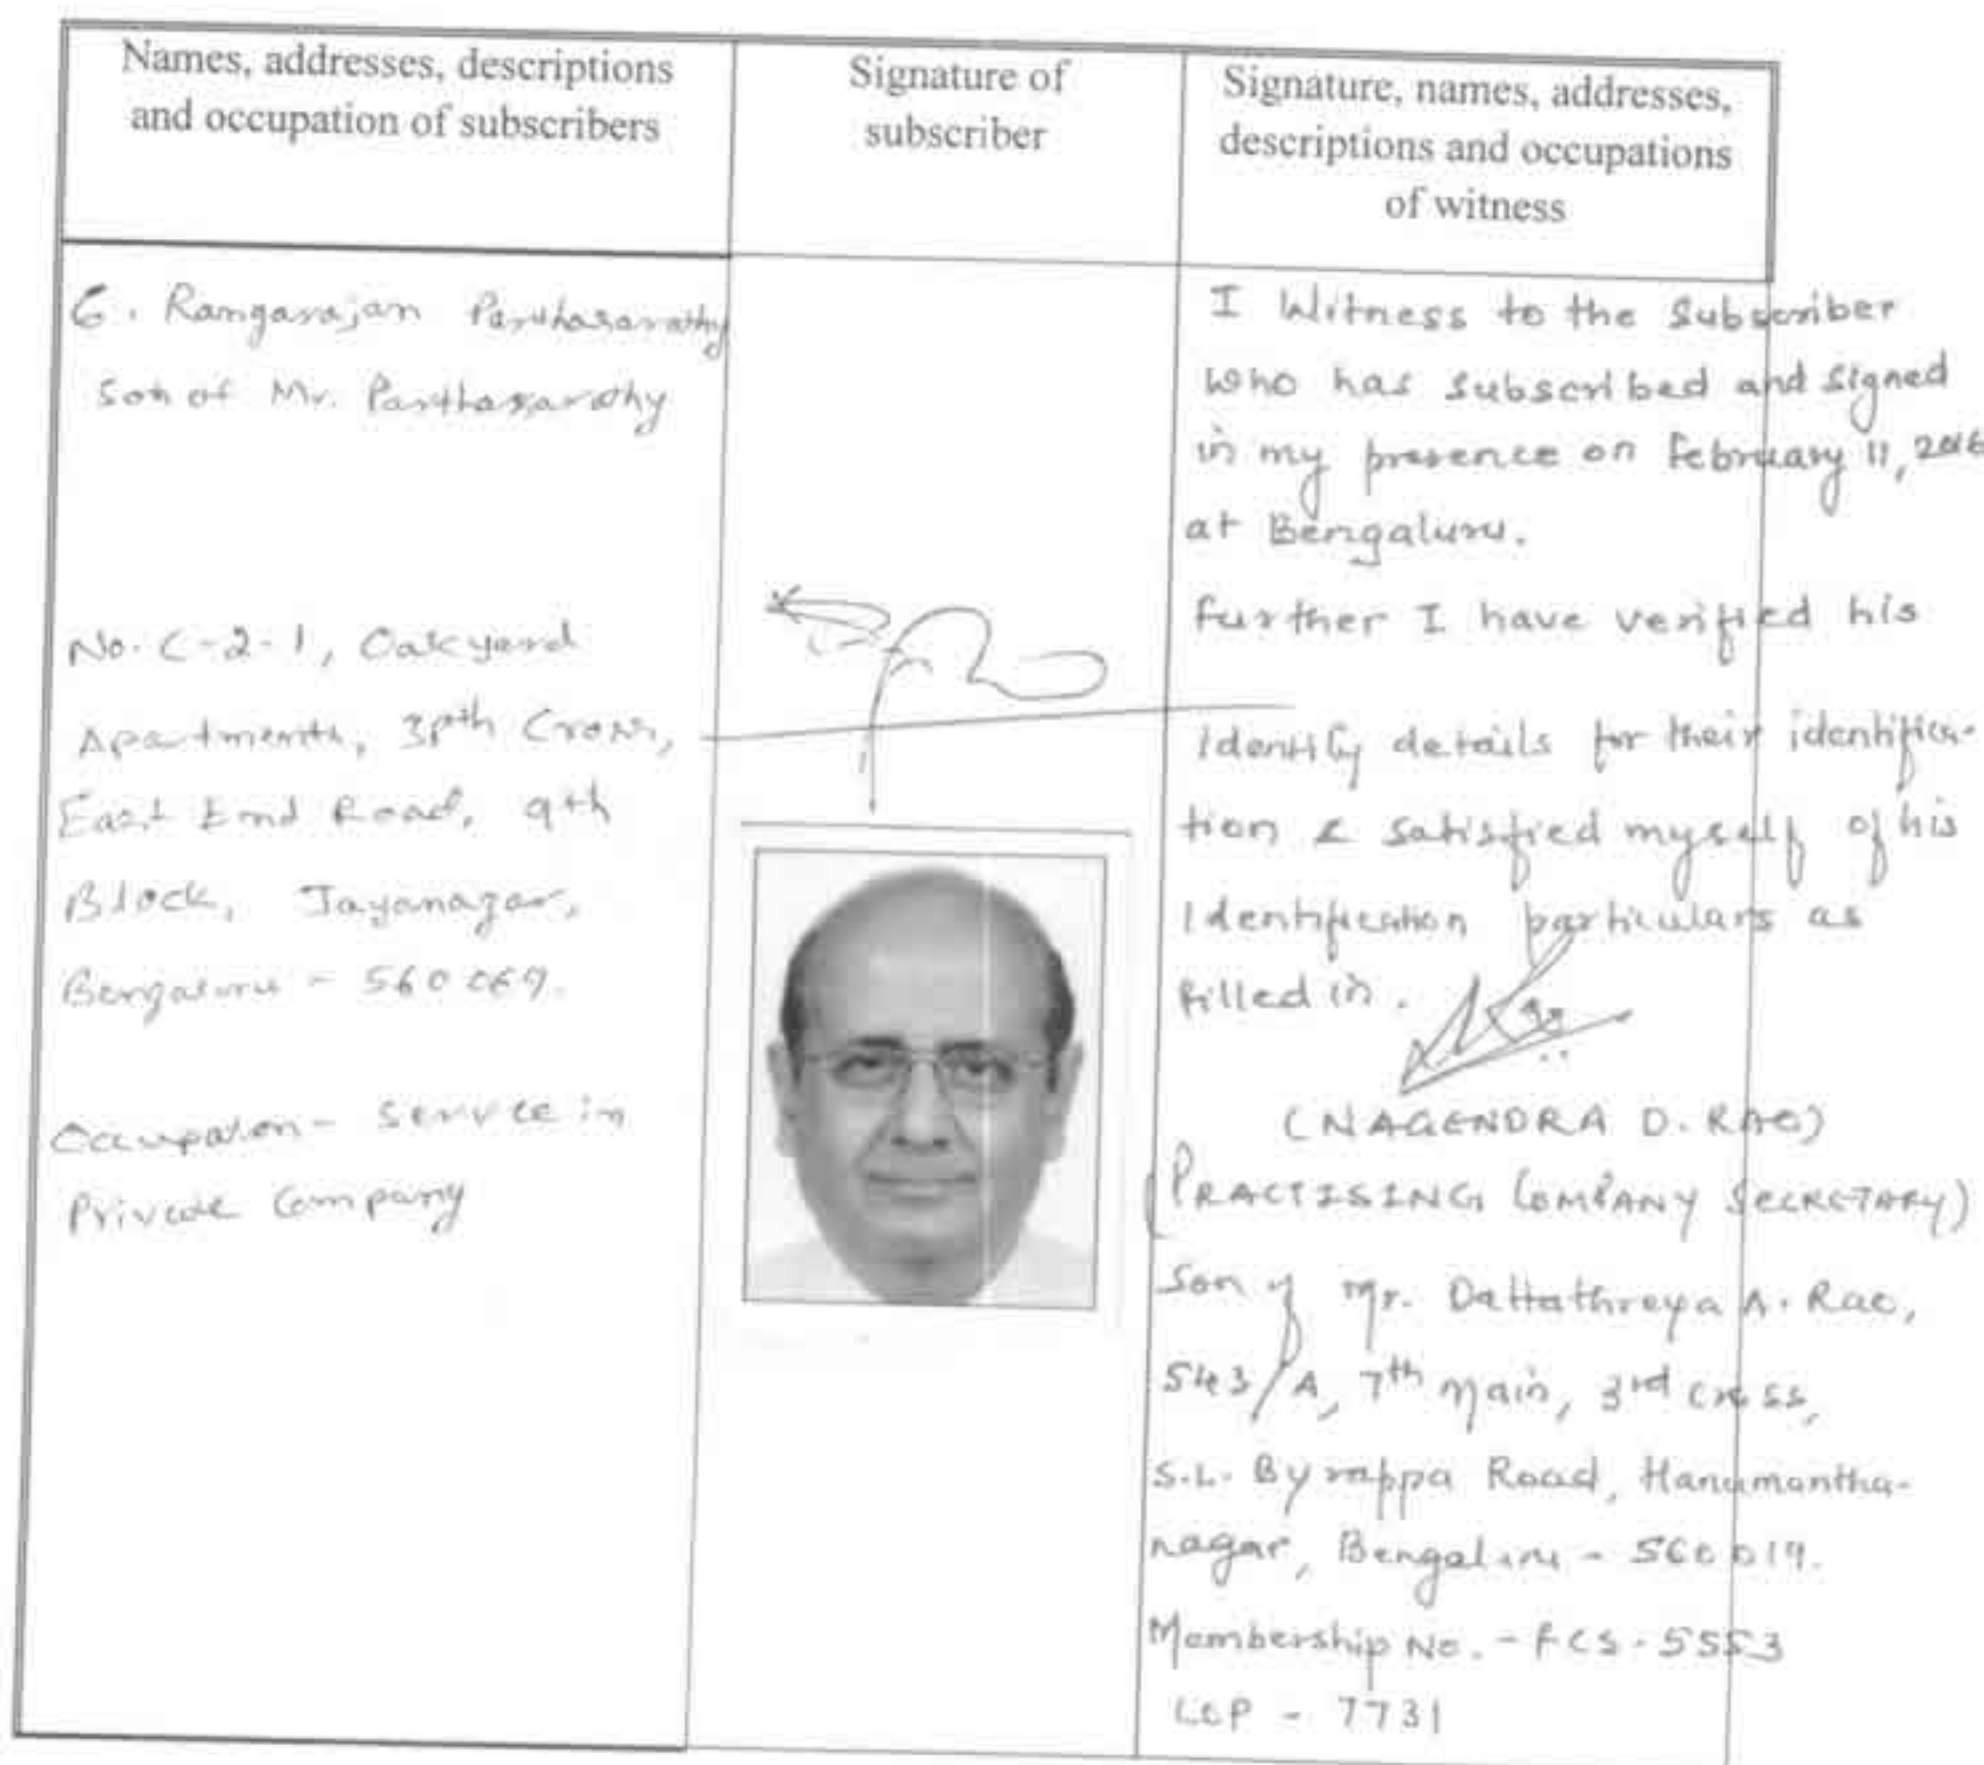 Names, addresses, descriptions
and occupation of subscribers
Signature of
subscriber
Signature, names, addresses,
descriptions and occupations
of witness
6. Rangarajan Parthasarathy
Son of Mr. Parthasarathy
No. C-2-1, Oakyard
Apartments, Cross,
East End Road, 9th
Block, Jayanagar,
Bengaluru - 560 069.
Occupation - Service in
Private Company
I Witness to the Subscriber
who has subscribed and signed
in my presence on February 11, 2016
at Bengaluru.
Further I have verified his
Identify details for their identifica-
tion & satisfied myself of his
Identification particulars as
filled in.
(NAGENDRA D. RAO)
(PRACTISING COMPANY SECRETARY)
Son of Mr. Dattathreya A. Rao,
543/A, 7th Main, 3rd Cross,
S.L. Byrappa Road, Hanumantha-
nagar, Bengaluru - 560 019.
Membership No. - FCS - 5553
COP - 7731